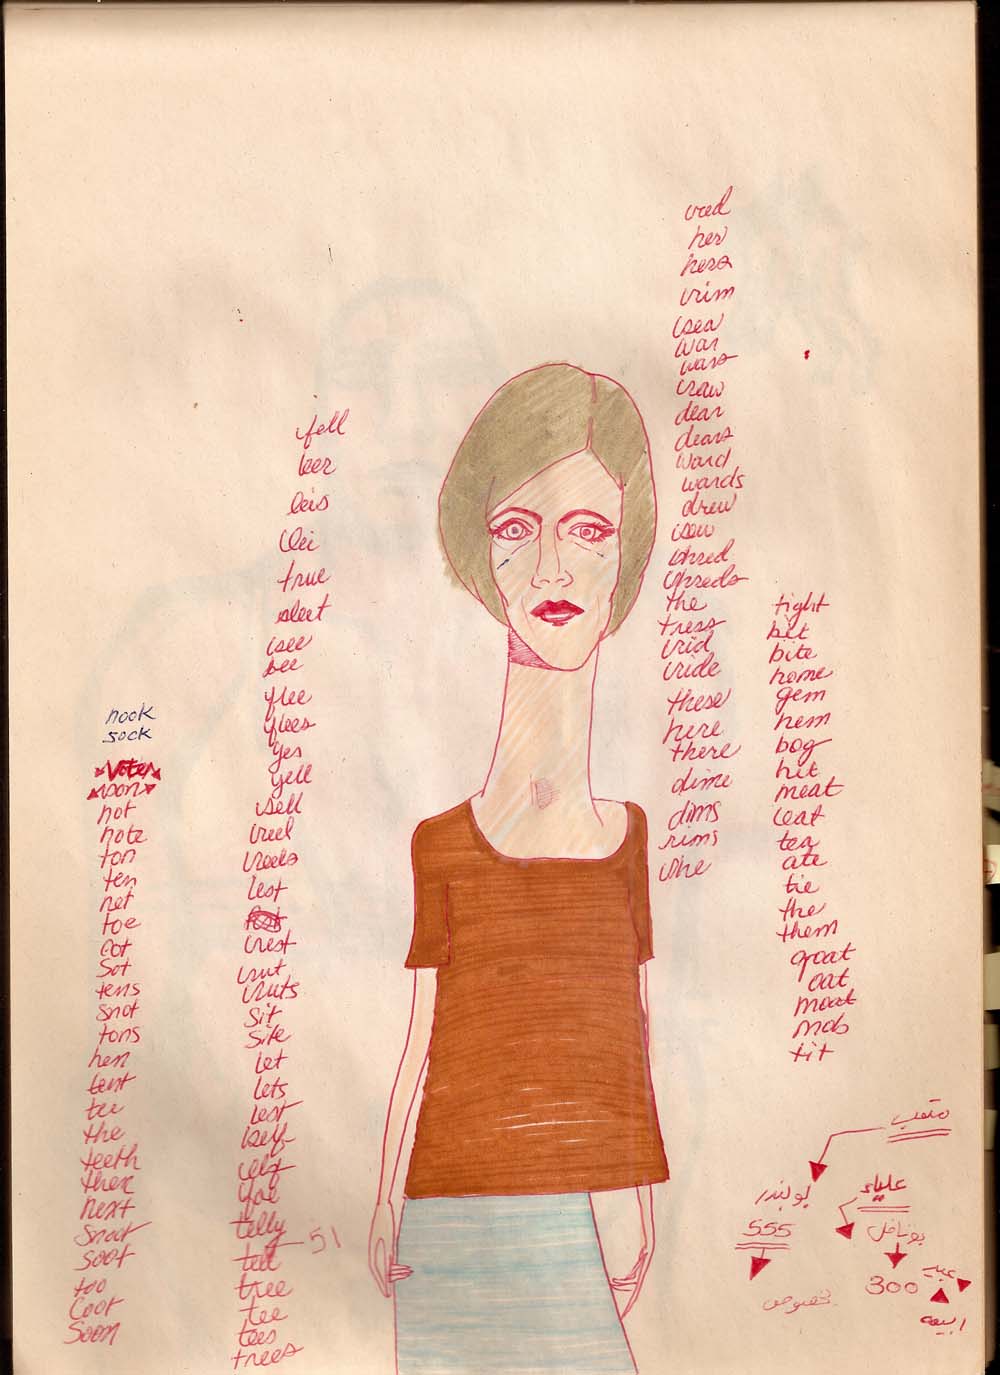 nook
sock
Voter
not
note
ton
ten
net
toe
cot
Sot
tens
snot
tons
hen
tent
tee
the
teeth
then
next
snoot
soot
too
Coot
Soon
fell
leis
Lei
true
sleet
see
bee
flee
flees
yes
yell
sell
reel
reels
lest
rest
rut
ruts
sit
site
let
lets
lest
self
elf
telly
51
tell
tree
tee
tees
trees
red
her
hers
rim
sea
war
wars
raw
dear
dears
ward
wards
drew
sew
shred
shreds
the
tress
rid
ride
these
here
there
dime
dims
rims
she
tight
bit
bite
home
gem
hem
bog
hit
meat
eat
tea
ate
tie
the
them
goat
oat
moat
mob
tit
متعب
555
300